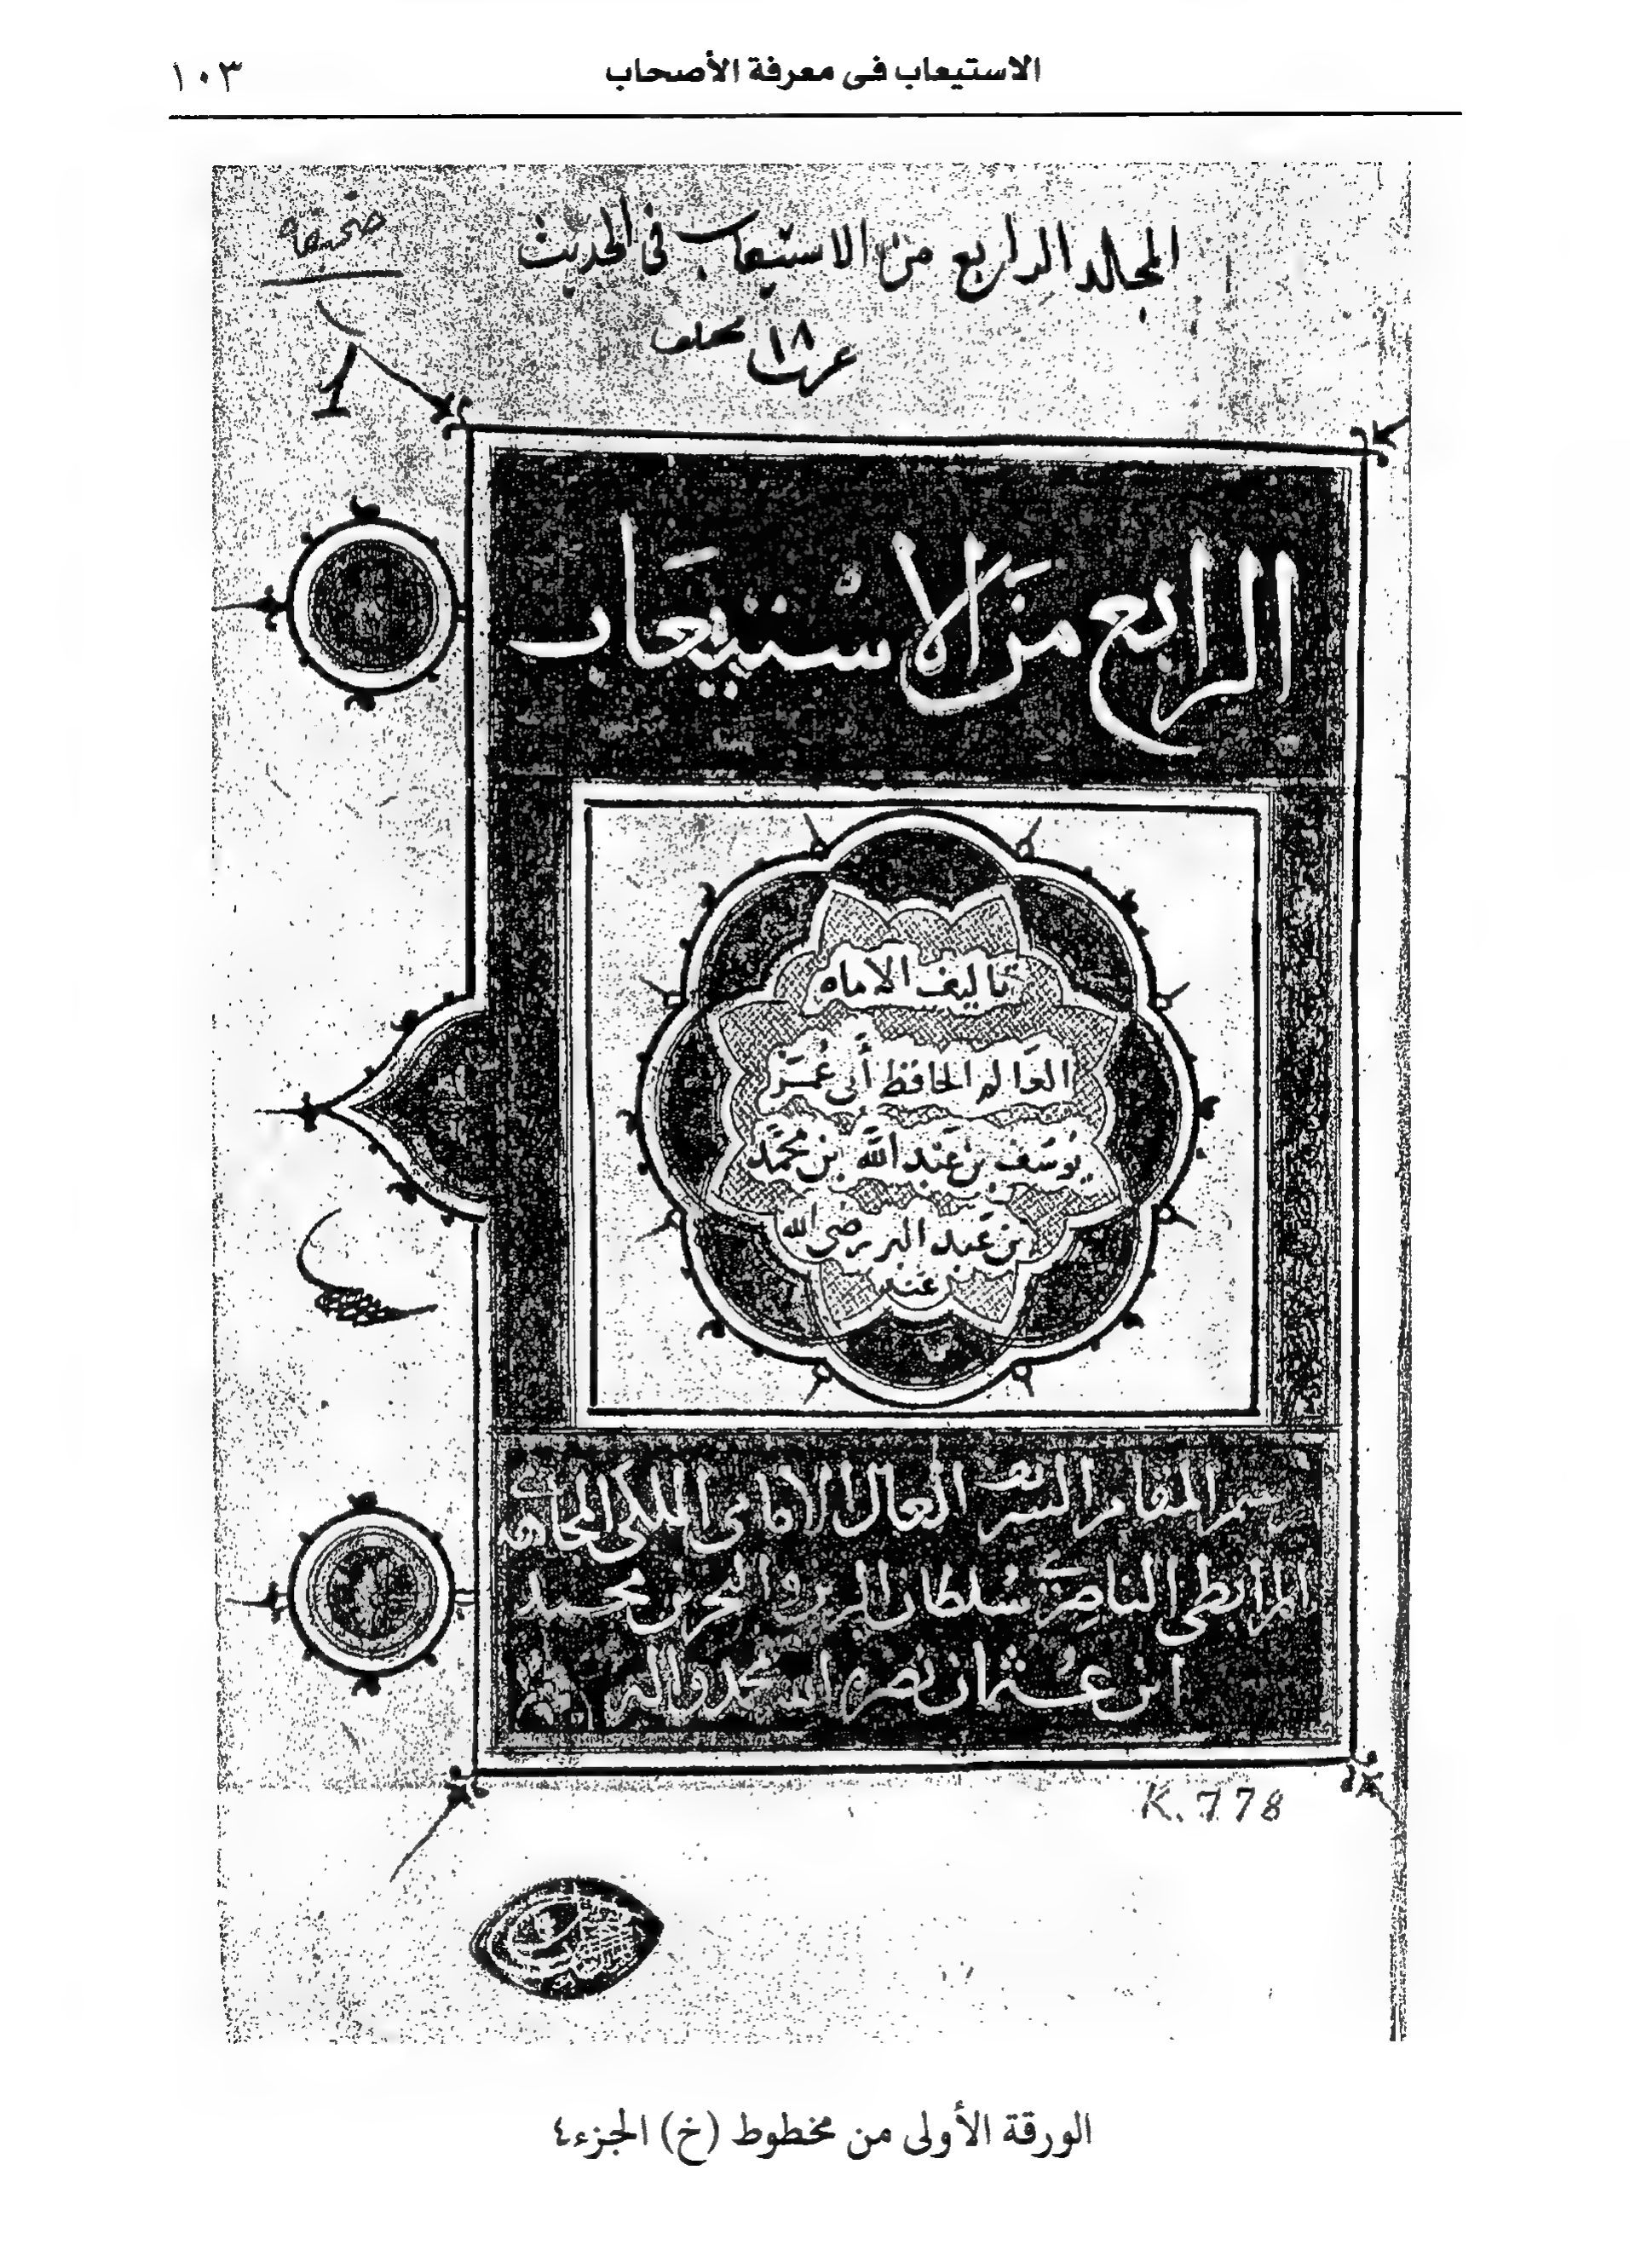 الاستيعاب فى معرفة الأصحاب
١٠٣
المجلد الرابع من الاستيعاب في الحديث
١٨
1
الرابع مَن الاسْتيعَاب
تاليف الامام
العَالم الحافظ أبي عُمَر
يوسف بن عَبد الله بن محمّد
بن عَبد البر رضى الله
عنه
برسم المقام الشريف العالى الامامى الملكى المجاهدى
المرابطى الناصرى سُلطان البرين والبحرين محمد
ابن عثمان نصره الله بمحمد واله
K. 778
الورقة الأولى من مخطوط (خ) الجزء٤